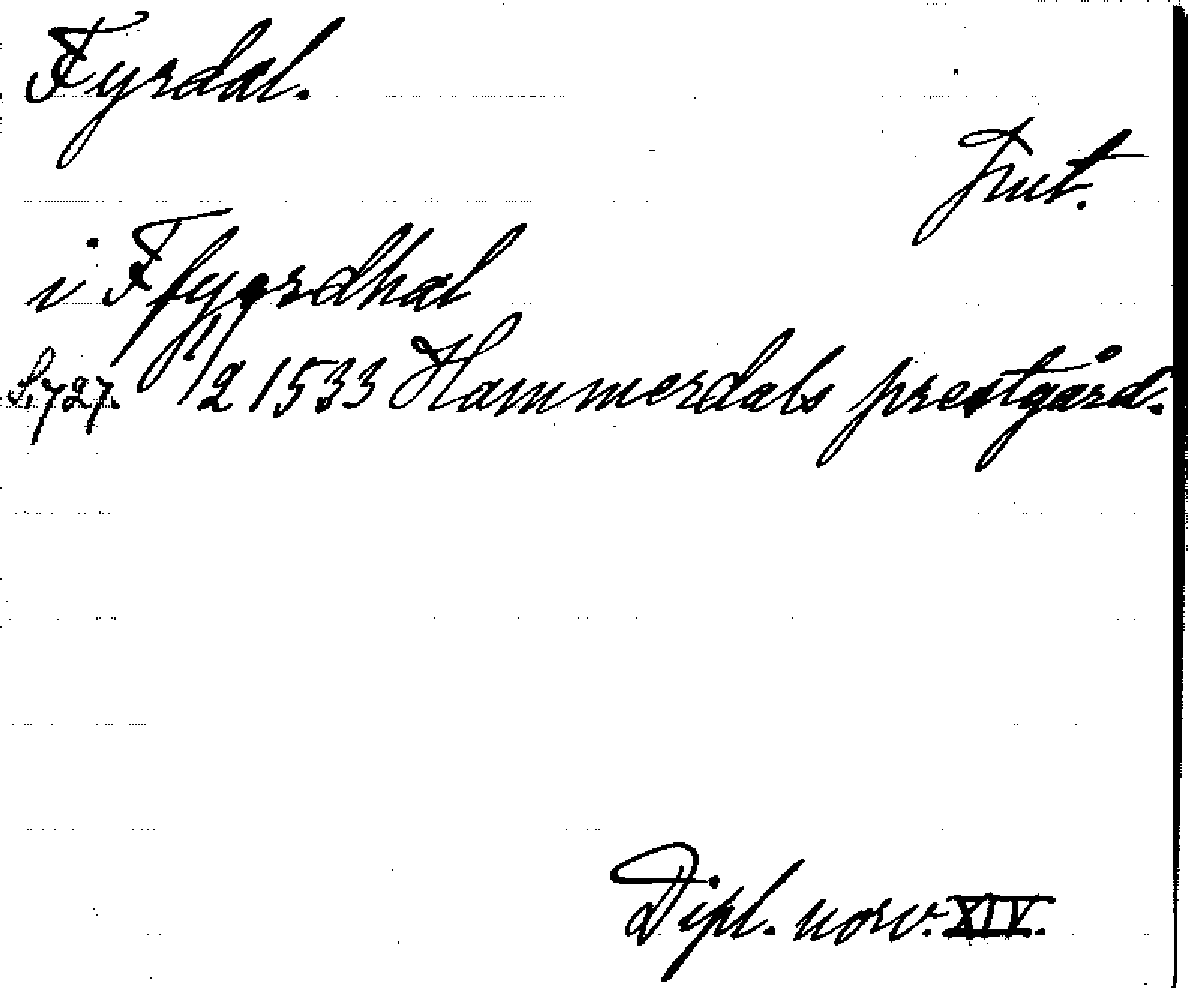 Fyrdal.
Jmt.
i Ffyrdhal
S. 727. 1/2 1533 Hammerdals prestgård.
Dipl. norv. XIV.